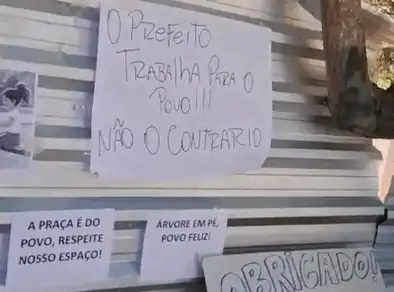 O PREFEITO
TRABALHA PARA O
POVO!!!
NÃO O CONTRARIO
A PRAÇA É DO
POVO, RESPEITE
NOSSO ESPAÇO!
ÁRVORE EM PÉ,
POVO FELIZ!
OBRIGADO!